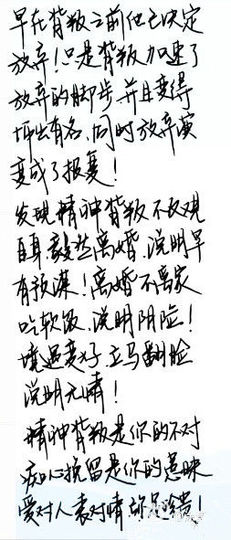 早在背叛之前他已决定
放弃！只是背叛加速了
放弃的脚步，并且变得
师出有名，同时放弃演
变成了报复！
发现精神背叛不权观
自身毅然离婚，说明早
有预谋！离婚不离家
吃软饭，说明阴险！
境遇变好，立马翻脸
说明无情！
精神背叛是你的不对
痴心挽留是你的愚昧
爱对人表对情